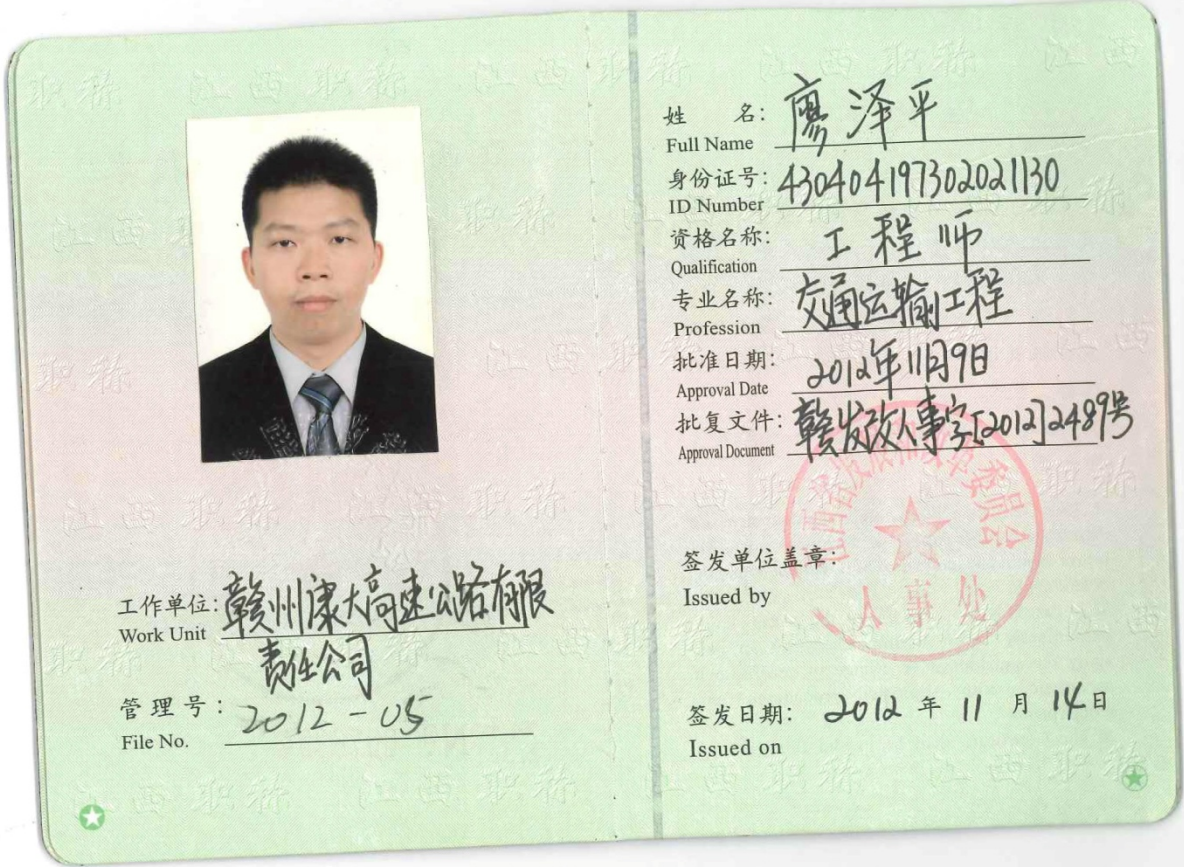 工作单位: 赣州康大高速公路有限
Work Unit
责任公司
管理号: 2012-05
File No.
姓名: 廖泽平
Full Name
身份证号: 430404197302021130
ID Number
资格名称: 工程师
Qualification
专业名称: 交通运输工程
Profession
批准日期: 2012年11月9日
Approval Date
批复文件: 赣发改人事字[2012]2489号
Approval Document
江西省发展和改革委员会
人事处
签发单位盖章:
Issued by
签发日期: 2012年11月14日
Issued on
江西职称